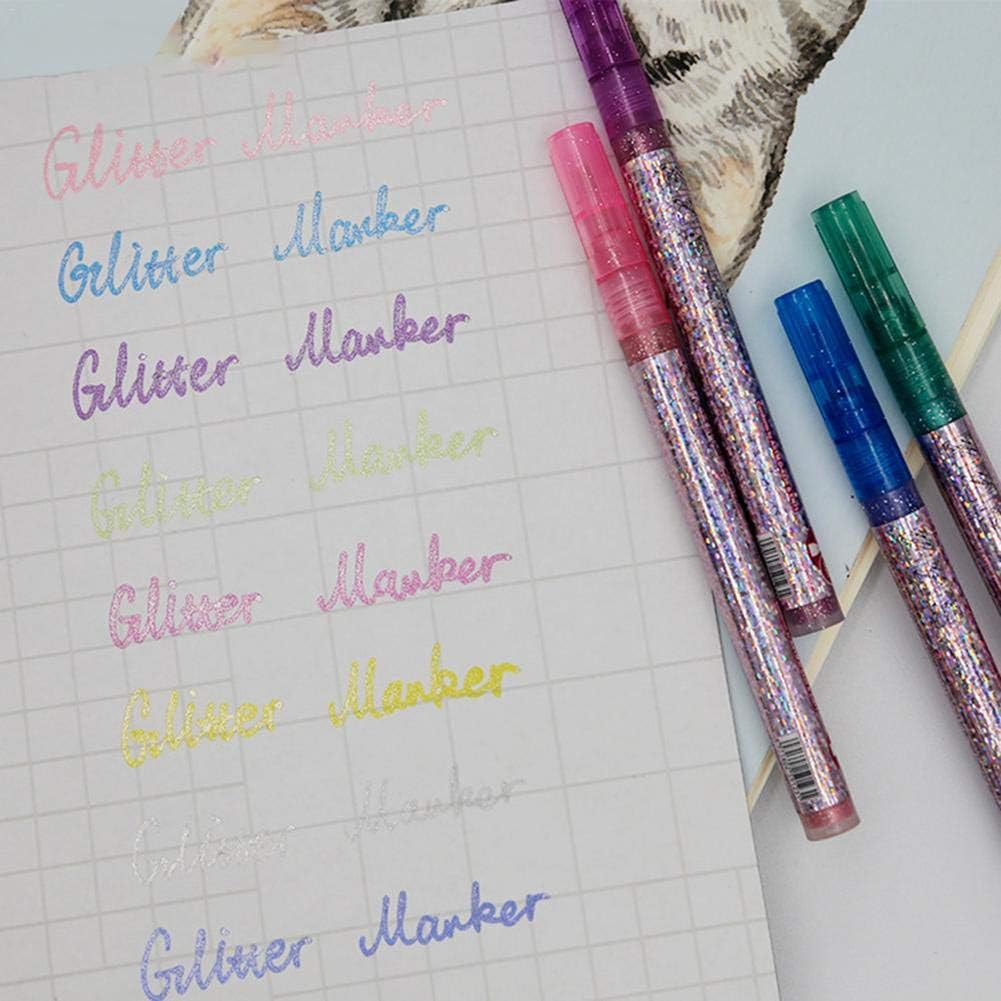 Glitter Marker
Glitter Marker
Glitter Marker
Glitter Marker
Glitter Marker
Glitter Marker
Glitter Marker
Glitter Marker